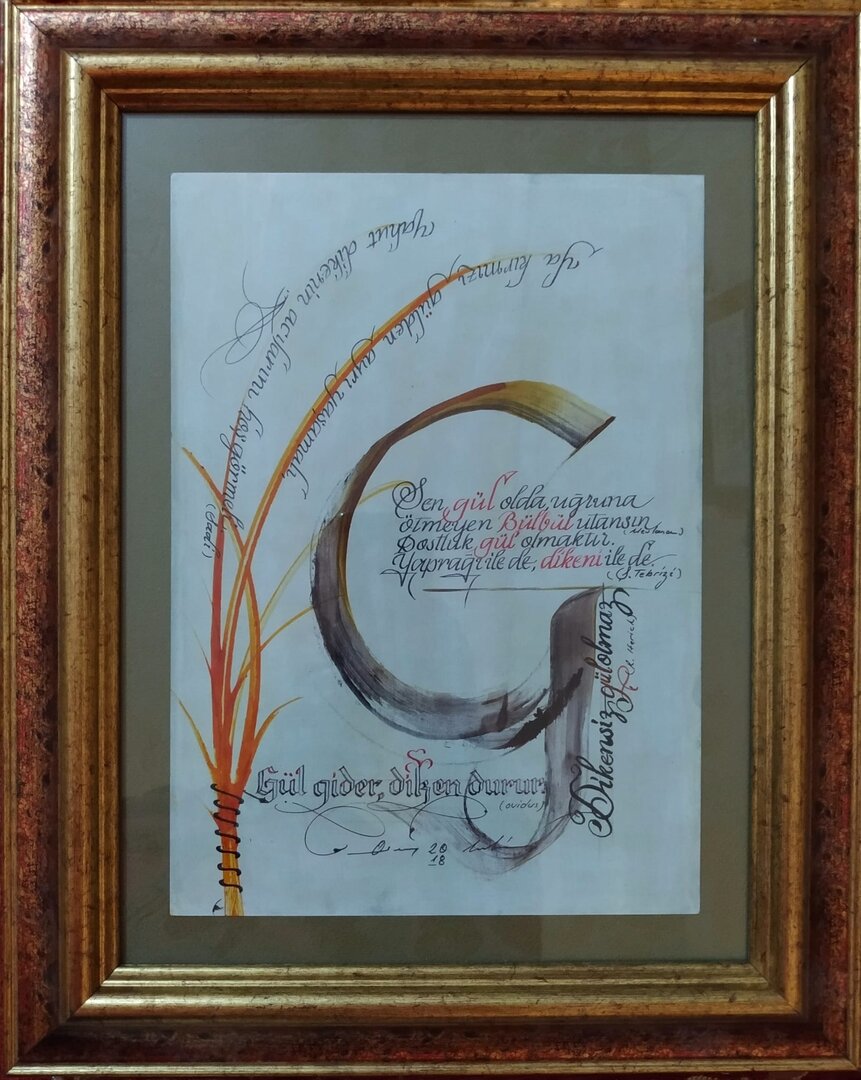 Ya kırmızı gülden ayrı yaşamalı,
yahut dikenin acılarını hoşgörmeli
(Saadi)
G
Sen, gül olda, uğruna
ötmeyen Bülbül utansın
(Mevlanam)
Dostluk, gül olmaktır.
Yaprağı ile de, dikeni ile de.
(Ş. Tebrizi)
Dikensiz gül olmaz
Gül gider, diken durur:
(ovidus)
20
18